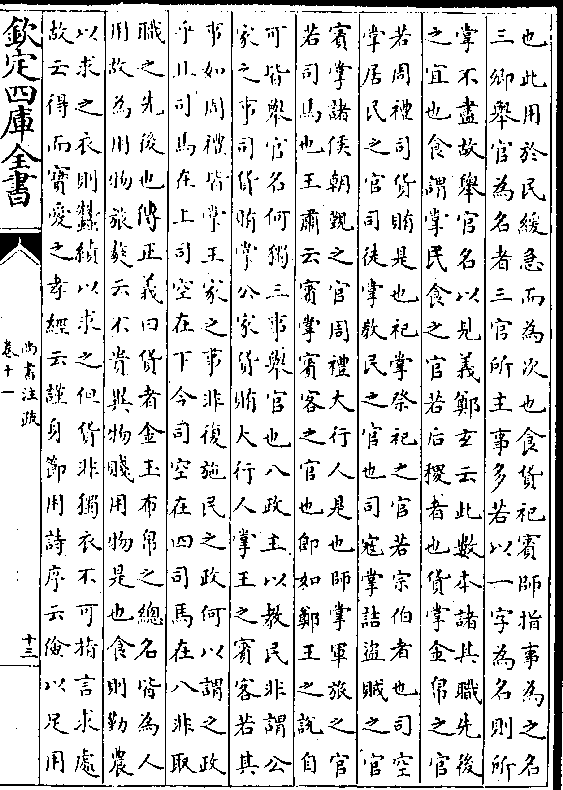 也此用於民緩急而為次也食貨祀賓師指事為之名
三卿舉官為名者三官所主事多若以一字為名則所
掌不盡故舉官名以見義鄭玄云此數本諸其職先後
之宜也食謂掌民食之官若后稷者也貨掌金帛之官
若周禮司貨賄是也祀掌祭祀之官若宗伯者也司空
掌居民之官司徒掌教民之官也司寇掌詰盜賊之官
賓掌諸侯朝覲之官周禮大行人是也師掌軍旅之官
若司馬也王肅云賓掌賓客之官也即如鄭王之說自
可皆舉官名何獨三事舉官也八政主以教民非謂公
家之事司貨賄掌公家貨賄大行人掌王之賓客若其
事如周禮皆掌王家之事非復施民之政何以謂之政
乎且司馬在上司空在下今司空在四司馬在八非取
職之先後也傳正義曰貨者金玉布帛之總名皆為人
用故為用物旅獒云不貴異物賤用物是也食則勤農
以求之衣則蠶績以求之但貨非獨衣不可指言求處
故云得而寶愛之孝經云謹身節用詩序云儉以足用
欽定四庫全書
尚書注疏
卷十一
十三